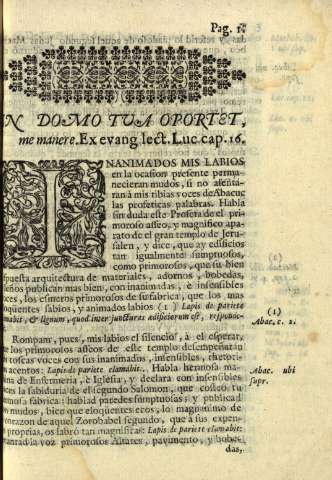 Pag. 1.
IN DOMO TUA OPORTET,
me manere. Ex evang lect. Luc cap. 16.
INANIMADOS MIS LABIOS
en la ocasion presente perma-
necieran mudos, si no assenta-
ran à mis tibias voces de Abacuc
las profeticas palabras. Habla
sin duda este Profeta de el pri-
moroso asseo, y magnifico apa-
rato de el gran templo de Jeru-
salen, y dice, que ay edificios
tan igualmente sumptuosos,
como primorosos, que su bien
arquitectura de materiales, adornos, bobedas,
publican mas bien, con inanimadas, è insensibles
los esmeros primorosos de su fabrica, que los mas
sabios, y animados labios (1) Lapis de pariete
& lignum, quod inter juncturas ædificiorum est,
(1)
Abac. c. 2.
Rompan, pues, mis labios el silencio, à el esperar,
los primorosos asseos de este templo desempeñaran
toscas voces con sus inanimados, insensibles, rhetori-
acentos: Lapis de pariete clamabit. Habla hermosa
de Enfermeria, è Iglesia, y declara con insensibles
la sabiduria de el segundo Salomon, que costeò tu
fabrica: hablad paredes sumptuosas; y publicad
mudos, bien que eloquentes ecos, lo magnanimo de
corazon de aquel Zorobabel segundo, que à sus expen-
proprias, os labrò tan magnificas: Lapis de pariete clamabit:
la voz primorosos Altares, pavimento, y bobe-
das,
Abac. ubi
supr.